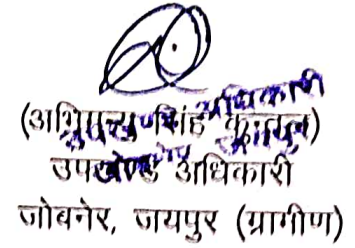 (अभिमन्यु सिंह कुन्तल)
उपखण्ड अधिकारी
जोबनेर, जयपुर (ग्रामीण)